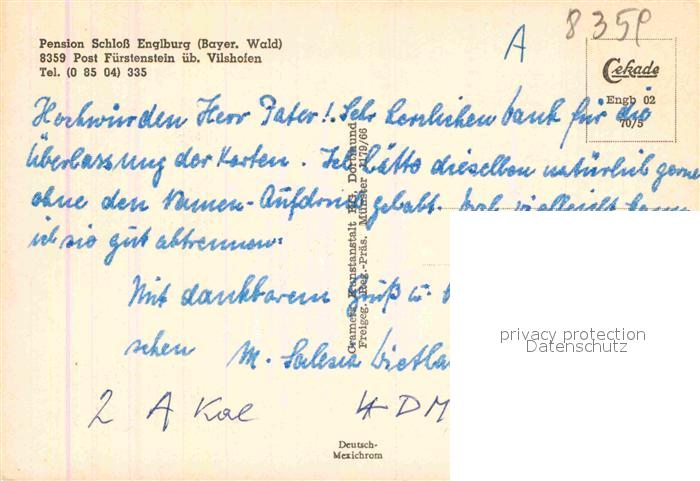 A 8359
Pension Schloß Englburg (Bayer. Wald)
8359 Post Fürstenstein üb. Vilshofen
Tel. (0 85 04) 335
Cekade
Engb 02
70/5
Hochwürden Herr Pater! Sehr herzlichen Dank für die
Überlassung der Karten. Ich hätte dieselben natürlich gerne
ohne den Namen-Aufdruck gehabt. Doch vielleicht kann
ich sie gut abtrennen.
Mit dankbarem Gruß u.
schen M. Salesia
Crametz Kunstanstalt KG, Dortmund
Freigeg. Reg.-Präs. Münster 1179/66
2 A Kal 4 DM
Deutsch-
Mexichrom
privacy protection
Datenschutz